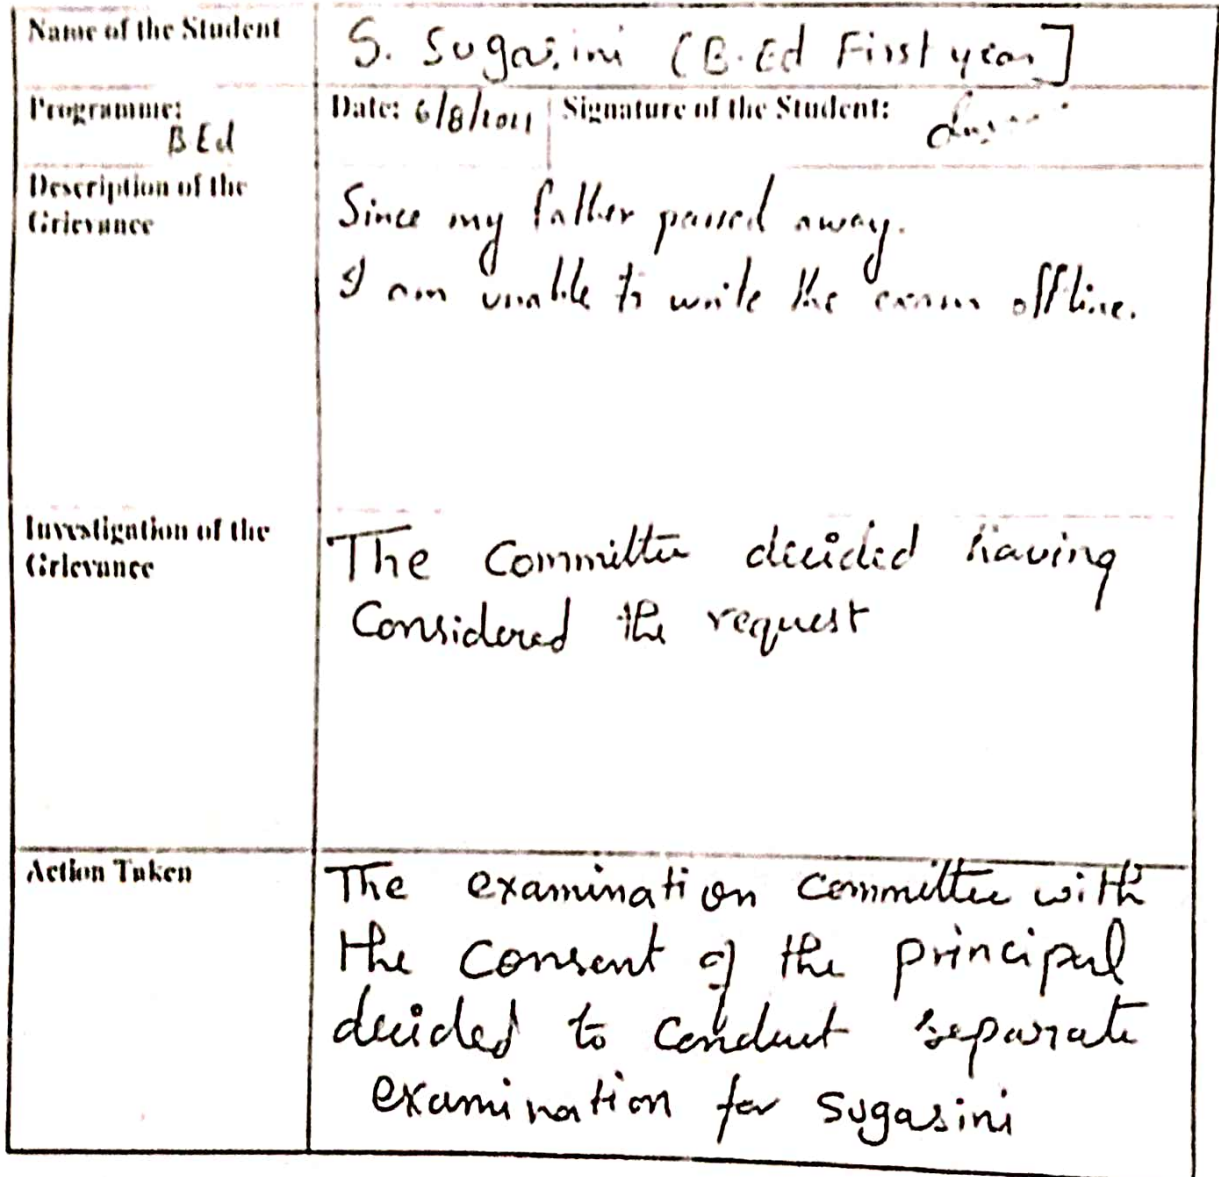 Name of the Student
S. Sugasini (B.Ed First year]
Programme: Date: 6/8/2021 Signature of the Student:
B Ed
Description of the
Grievance
Since my father passed away.
I am unable to write the exam offline.
Investigation of the
Grievance
The Committee decided having
Considered the request
Action Taken
The examination committee with
the consent of the principal
decided to conduct separate
examination for Sugasini